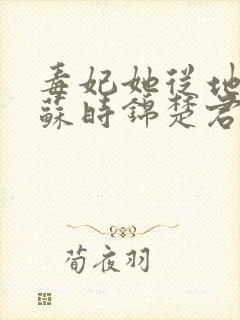 毒妃她從地
蘇時錦楚君
荀夜羽